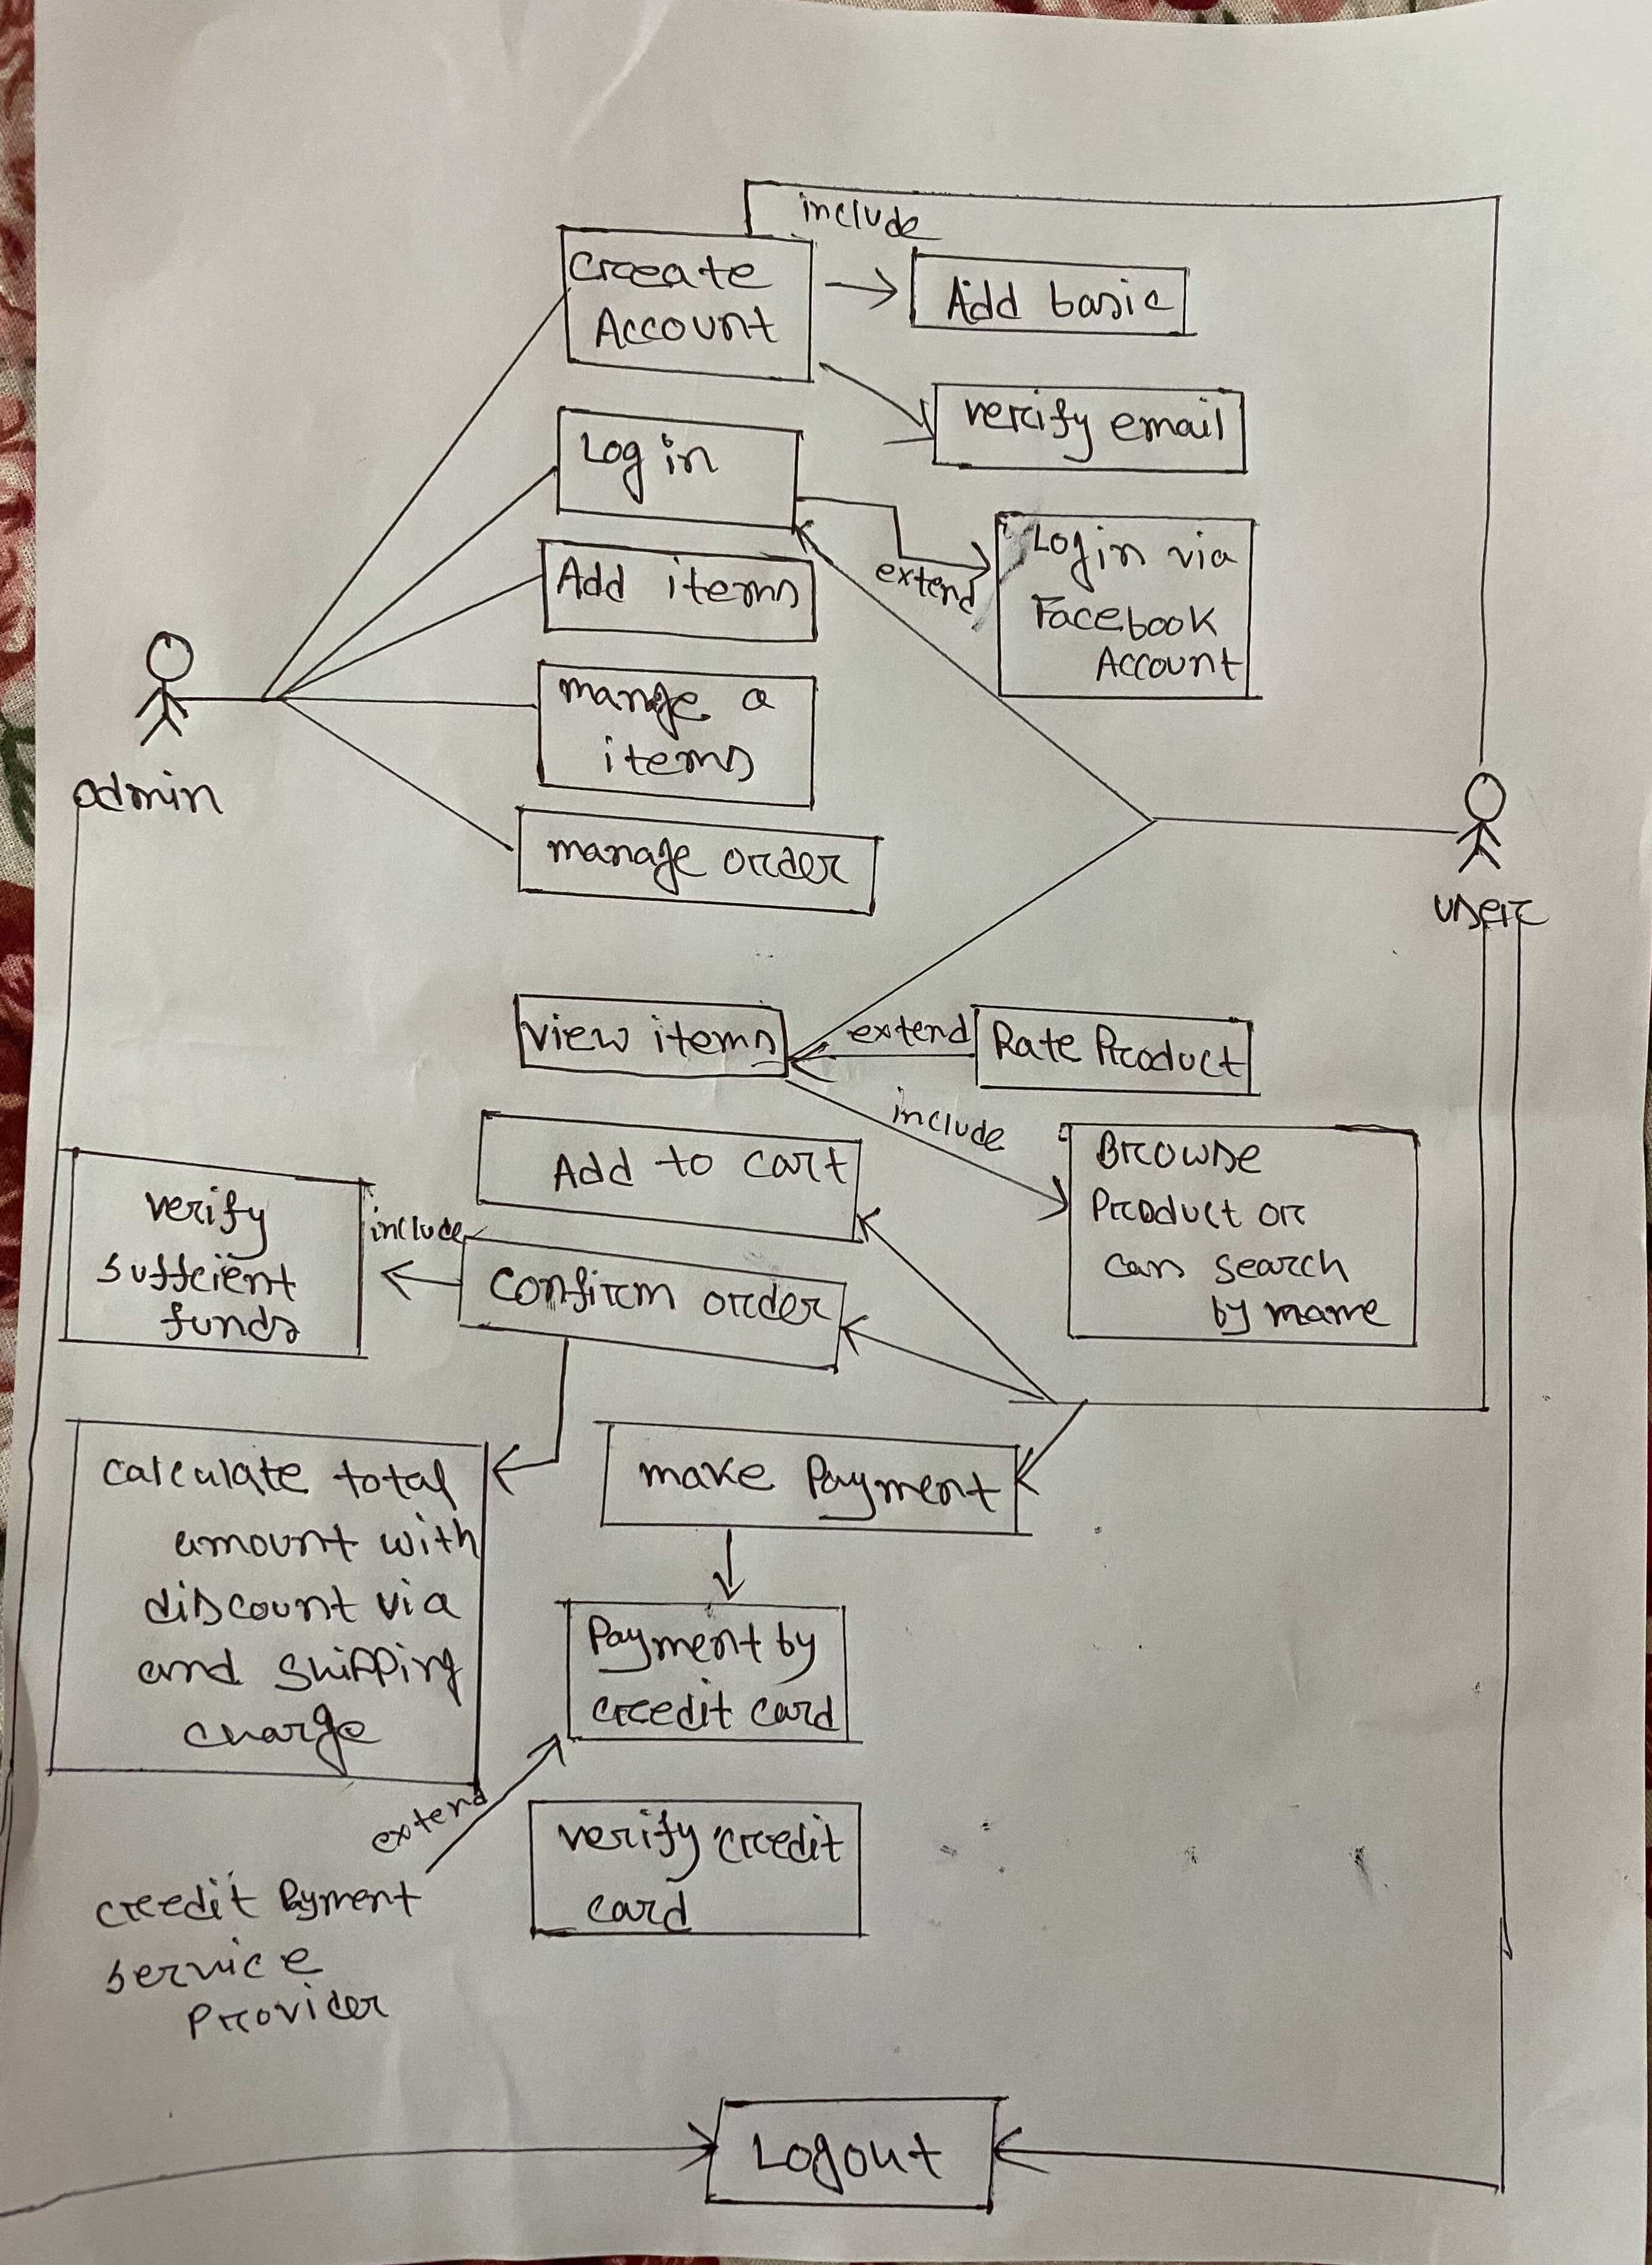 include
Create
Account
Add basic
verify email
Log in
Login via
Facebook
Account
extend
Add items
mange a
items
admin
manage order
user
view items
extend
Rate Product
include
Browse
Product or
can search
by name
Add to cart
verify
sufficient
funds
include
confirm order
calculate total
amount with
discount via
and shipping
charge
make Payment
Payment by
credit card
extend
verify credit
card
credit Payment
service
Provider
Logout